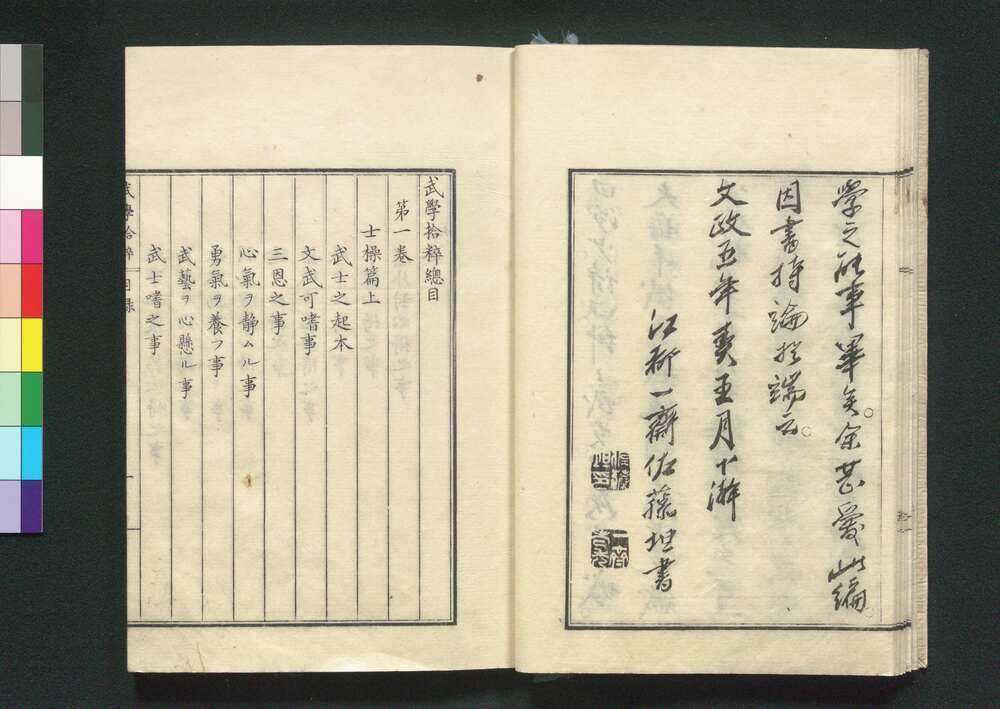 學之能事畢矣。余甚愛此編
因書持論於端云。
文政五年春王月下澣
江都一齋佐藤坦書
武學拾粹總目
第一卷
士操篇上
武士之起本
文武可嗜事
三恩之事
心氣ヲ靜ムル事
勇氣ヲ養フ事
武藝ヲ心懸ル事
武士嗜之事
武學拾粹 目録 一